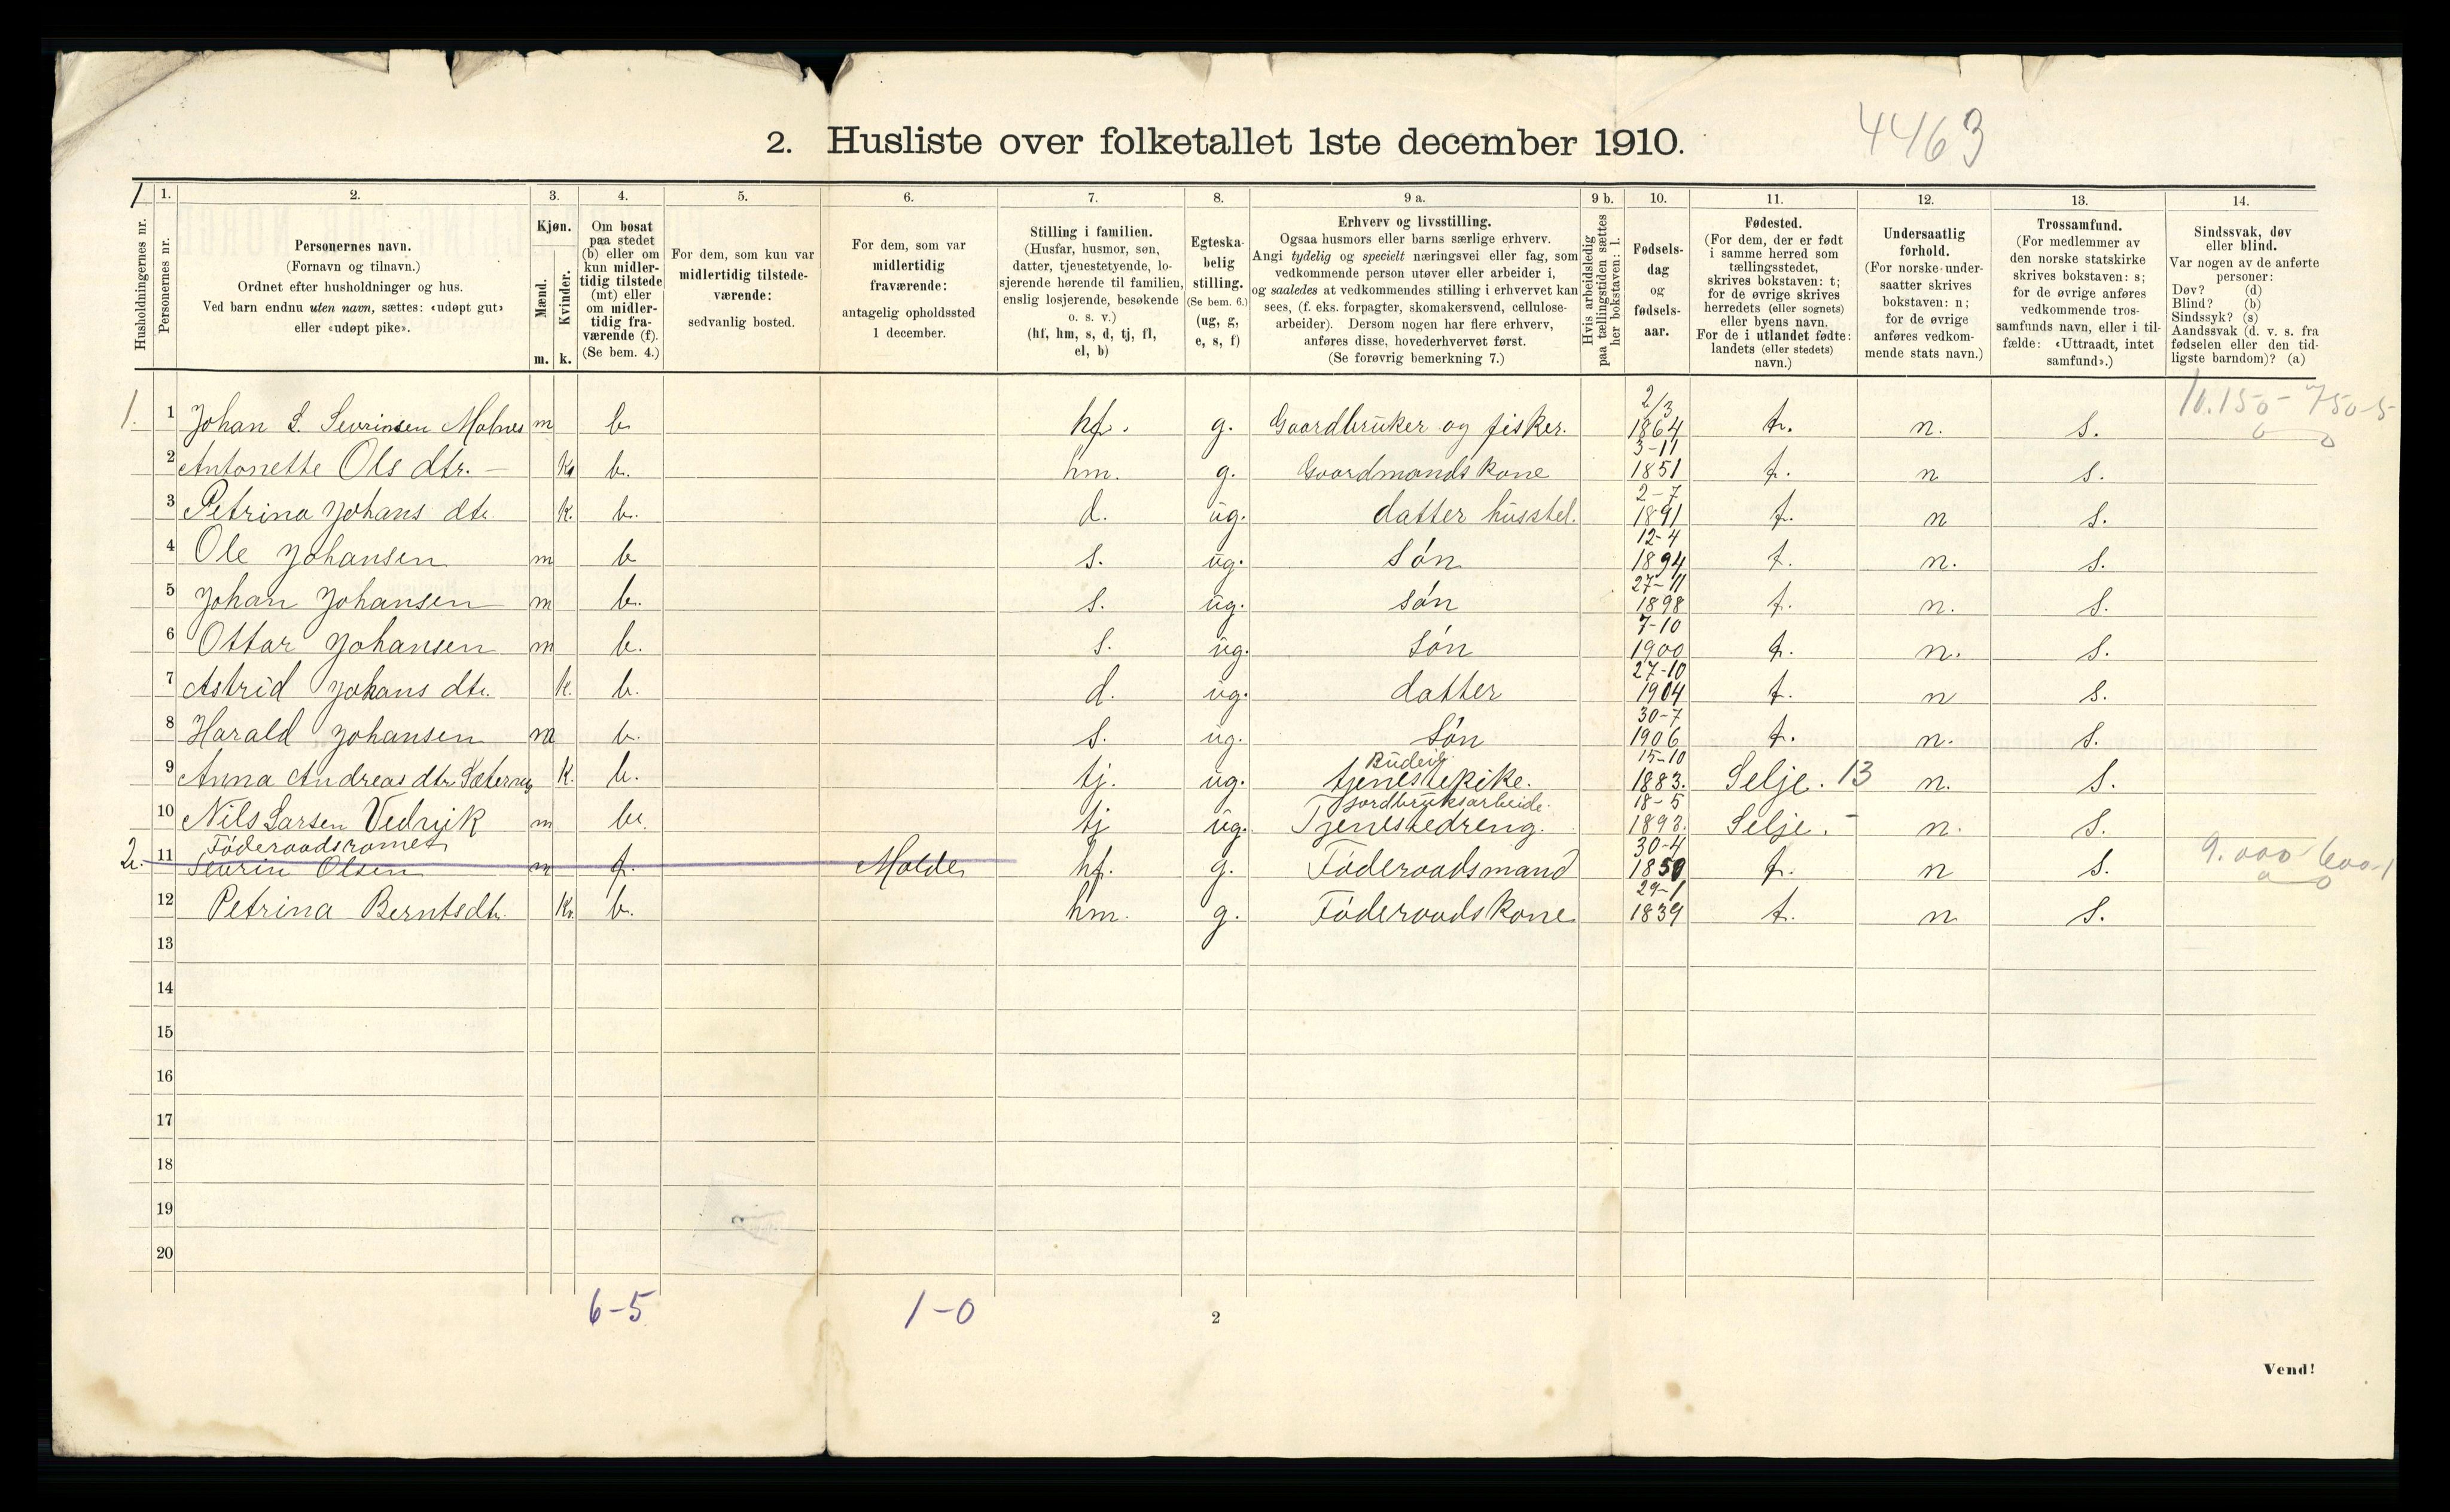 4463
2. Husliste over folketallet 1ste december 1910.
1
Husholdningernes nr.
1.
Personernes nr.
2.
Personernes navn.
(Fornavn og tilnavn.)
Ordnet efter husholdninger og hus.
Ved barn endnu uten navn, sættes: «udøpt gut»
eller «udøpt pike».
3.
Kjøn.
Mænd.
Kvinder.
m. k.
4.
Om bosat
paa stedet
(b) eller om
kun midler-
tidig tilstede
(mt) eller
om midler-
tidig fra-
værende (f).
(Se bem. 4.)
5.
For dem, som kun var
midlertidig tilstede-
værende:
sedvanlig bosted.
6.
For dem, som var
midlertidig
fraværende:
antagelig opholdssted
1 december.
7.
Stilling i familien.
(Husfar, husmor, søn,
datter, tjenestetyende, lo-
sjerende hørende til familien,
enslig losjerende, besøkende
o. s. v.)
(hf, hm, s, d, tj, fl,
el, b)
8.
Egteska-
belig
stilling.
(Se bem. 6.)
(ug, g,
e, s, f)
9 a.
Erhverv og livsstilling.
Ogsaa husmors eller barns særlige erhverv.
Angi tydelig og specielt næringsvei eller fag, som
vedkommende person utøver eller arbeider i,
og saaledes at vedkommendes stilling i erhvervet kan
sees, (f. eks. forpagter, skomakersvend, cellulose-
arbeider). Dersom nogen har flere erhverv,
anføres disse, hovederhvervet først.
(Se forøvrig bemerkning 7.)
9 b.
Hvis arbeidsledig
paa tællingstiden sættes
her bokstaven: l.
10.
Fødsels-
dag
og
fødsels-
aar.
11.
Fødested.
(For dem, der er født
i samme herred som
tællingsstedet,
skrives bokstaven: t;
for de øvrige skrives
herredets (eller sognets)
eller byens navn.
For de i utlandet fødte:
landets (eller stedets)
navn.)
12.
Undersaatlig
forhold.
(For norske under-
saatter skrives
bokstaven: n;
for de øvrige
anføres vedkom-
mende stats navn.)
13.
Trossamfund.
(For medlemmer av
den norske statskirke
skrives bokstaven: s;
for de øvrige anføres
vedkommende tros-
samfunds navn, eller i til-
fælde: «Uttraadt, intet
samfund».)
14.
Sindssvak, døv
eller blind.
Var nogen av de anførte
personer:
Døv? (d)
Blind? (b)
Sindssyk? (s)
Aandssvak (d. v. s. fra
fødselen eller den tid-
ligste barndom)? (a)
1. 1 Johan S. Sevrinsen Molnes m b hf. g. Gaardbruker og fisker. 2/3 1864 t. n. s. 10.150 - 750-5
2 Antonette Ols dtr. — k b. hm. g. Gaardmands kone 3-11 1851 t. n s.
3 Petrina Johans dtr. k. b. d. ug. datter husstel. 2-7 1891 t. n s.
4 Ole Johansen m b s. ug. søn 12-4 1894 t. n. s.
5 Johan Johansen m b. s. ug. søn 27-11 1898 t. n. s.
6 Ottar Johansen m b. s. ug. søn 7-10 1900 t. n. s.
7 Astrid Johans dtr. k. b. d. ug. datter 27-10 1904 t. n s.
8 Harald Johansen m b. s. ug. søn 30-7 1906 t. n. s.
9 Anna Andreas dtr k. b. tj. ug. Budeig tjenestepike. 15-10 1883. Selje. 13 n. s.
10 Nils Larsen Vedvik m b. tj ug. Jordbruksarbeide. Tjenestedreng. 18-5 1893. Selje. - n. s.
Føderaadsromet
2. 11 Sevrin Olsen m f. Molde hf. g. Føderaadsmand 30-4 1850 t. n s. 9.000 600-1
12 Petrina Berntsdtr. k. b. hm. g. Føderaadskone 29-1 1839 t. n s.
13
14
15
16
17
18
19
20
6-5 1-0
2
Vend!